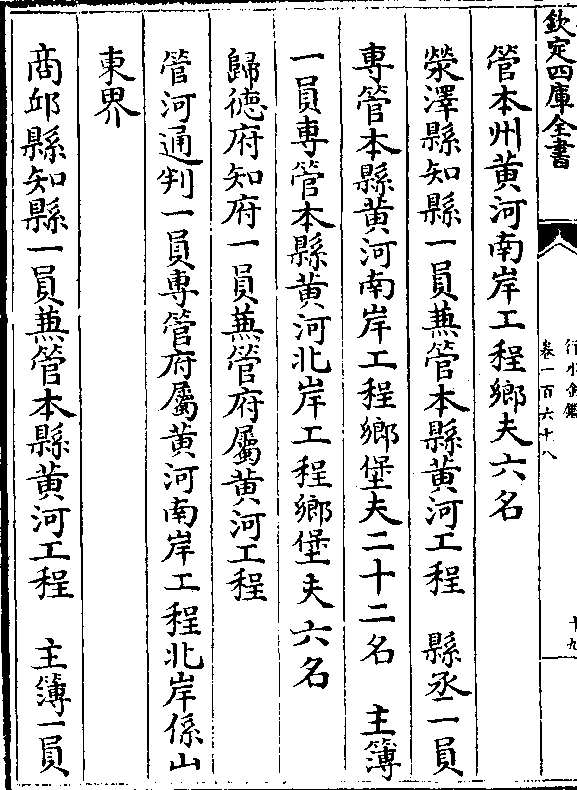 欽定四庫全書
行水金鑑
卷一百六十八
十九
管本州黃河南岸工程鄉夫六名
滎澤縣知縣一員兼管本縣黃河工程　縣丞一員
專管本縣黃河南岸工程鄉堡夫二十二名　主簿
一員專管本縣黃河北岸工程鄉堡夫六名
歸德府知府一員兼管府屬黃河工程
管河通判一員專管府屬黃河南岸工程北岸係山
東界
商邱縣知縣一員兼管本縣黃河工程　主簿一員